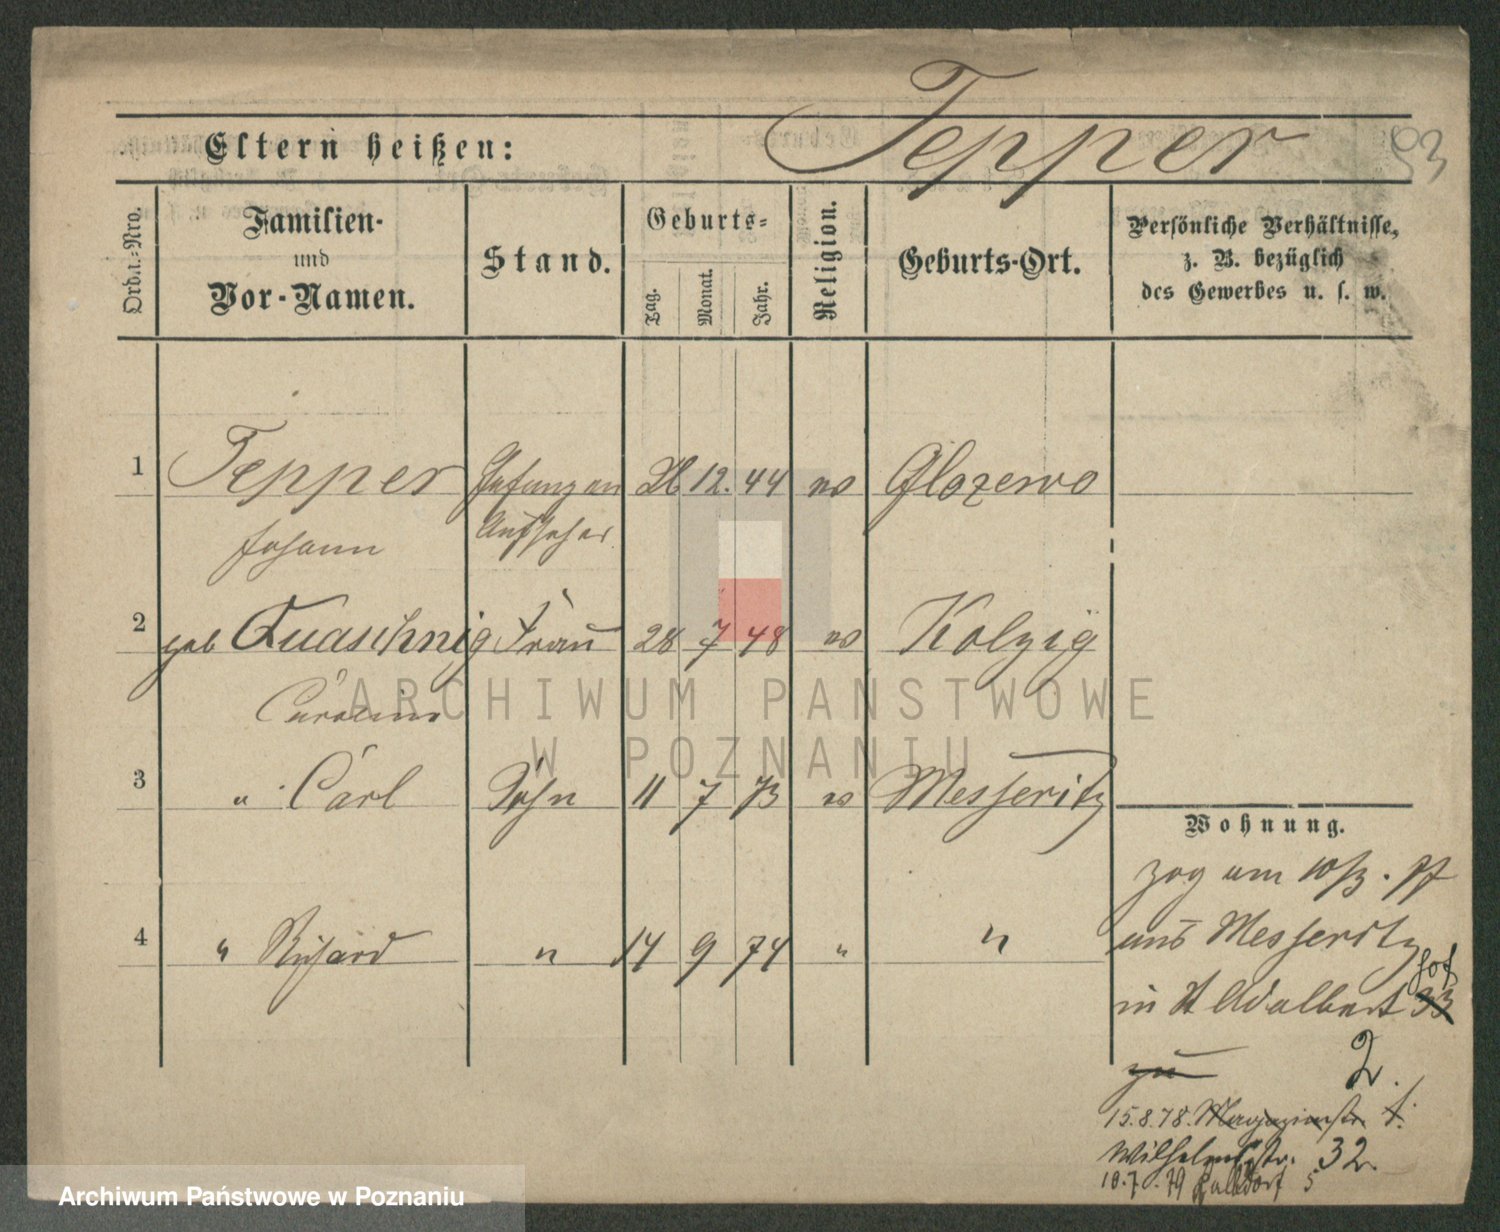 Eltern heißen: Tepper 53
Ord.-Nro.
Familien- und Vor-Namen.
Stand.
Geburts-
Tag. Monat. Jahr.
Religion.
Geburts-Ort.
Persönliche Verhältnisse,
z. B. bezüglich
des Gewerbes u. s. w.
1 Tepper Gefangen 12. 44 ev
Johann Aufseher
2 geb Quaschnig Frau 28 7 48 ev Kolzig
Caroline
3 " Carl Sohn 11 7 73 ev Messeritz
Wohnung.
zog am
4 " Richard " 14 9 74 " "
aus Messeritz
in St Adalbert 33
2.
zu
15.8.78. Magazinstr. 1.
Wilhelmstr. 32.
10.7.79 5
ARCHIWUM PANSTWOWE
W POZNANIU
Archiwum Państwowe w Poznaniu